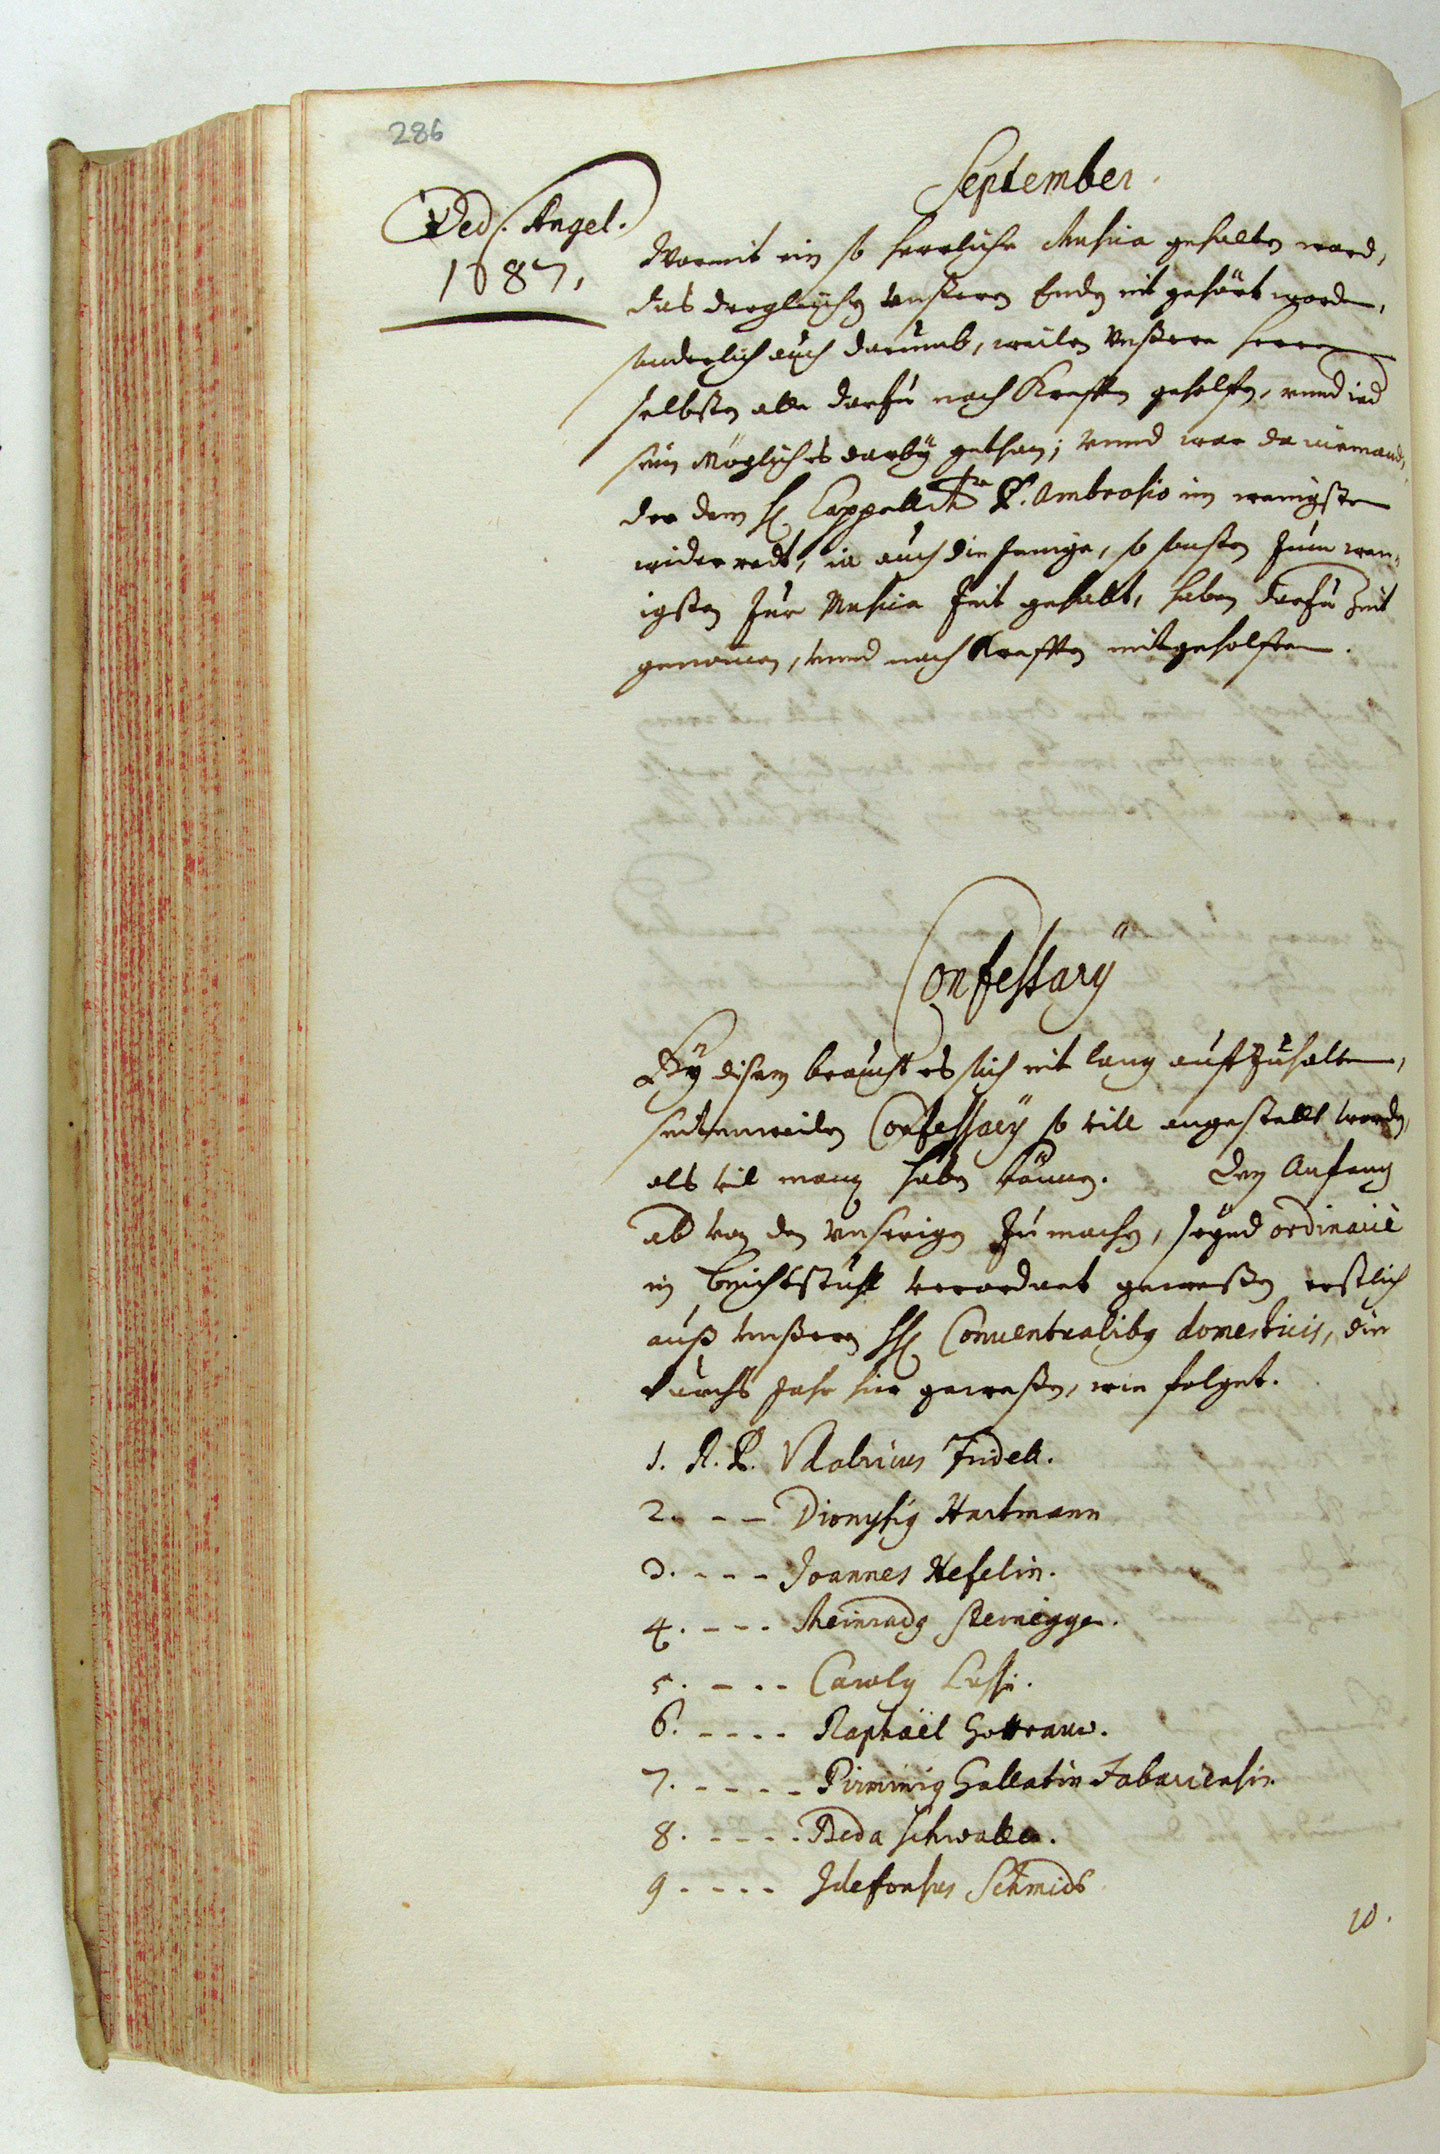 286
September.
Ded. Angel.
1687.
Warmit ein so herrliche Musica gehalten ward,
das dergleichen unsseren Enden nit gehört worden,
sonderlich auch darumb, weilen unssere Herren
selbsten alle darzu nach Krefften geholffen, unnd ied
sein Möglichs darby gethan; unnd war da niemand,
der dem H. Cappellmr P. Ambrosio im wenigsten
widerredt, ia auch die ienige, so sonsten zum wen-
igsten zur Musica Zeit gehabt, haben darzu Zeit
genomen, unnd nach Krefften mitgeholffen.
Confessarÿ
Bÿ disem braucht es sich nit lang auffzuhalten,
seitenweilen Confessarÿ so vill angestellt worden,
als vil man haben können. Den Anfang
ab von den unserigen zu machen, seÿnd ordinariè
in Beichtstuhl verordnet gewessen erstlich
auß unsseren HH. Conuentualibus domesticis, die
durchs Jahr hier gewessen, wie folget.
1. R. P. Vdalricus Jüdell.
2. - - Dionysius Hartmann
3. - - - Joannes Hefelin.
4. - - - Meinradus Steinegger.
5. - - - Carolus Lussi.
6. - - - - Raphaël Gottrauw.
7. - - - - Pirminius Gallatin Fabariensis.
8. - - - - Beda Schwaller.
9 - - - - Ildefonsus Schmidt
10.